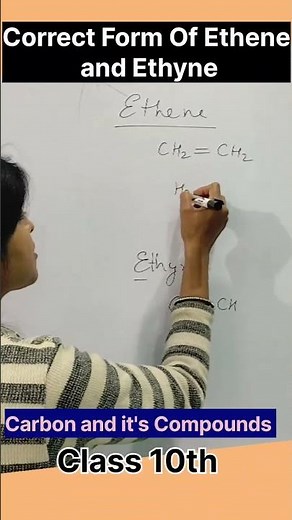 Correct Form Of Ethene
and Ethyne
Ethene
CH₂ = CH₂
H
Ethy
CH
Carbon and it's Compounds
Class 10th